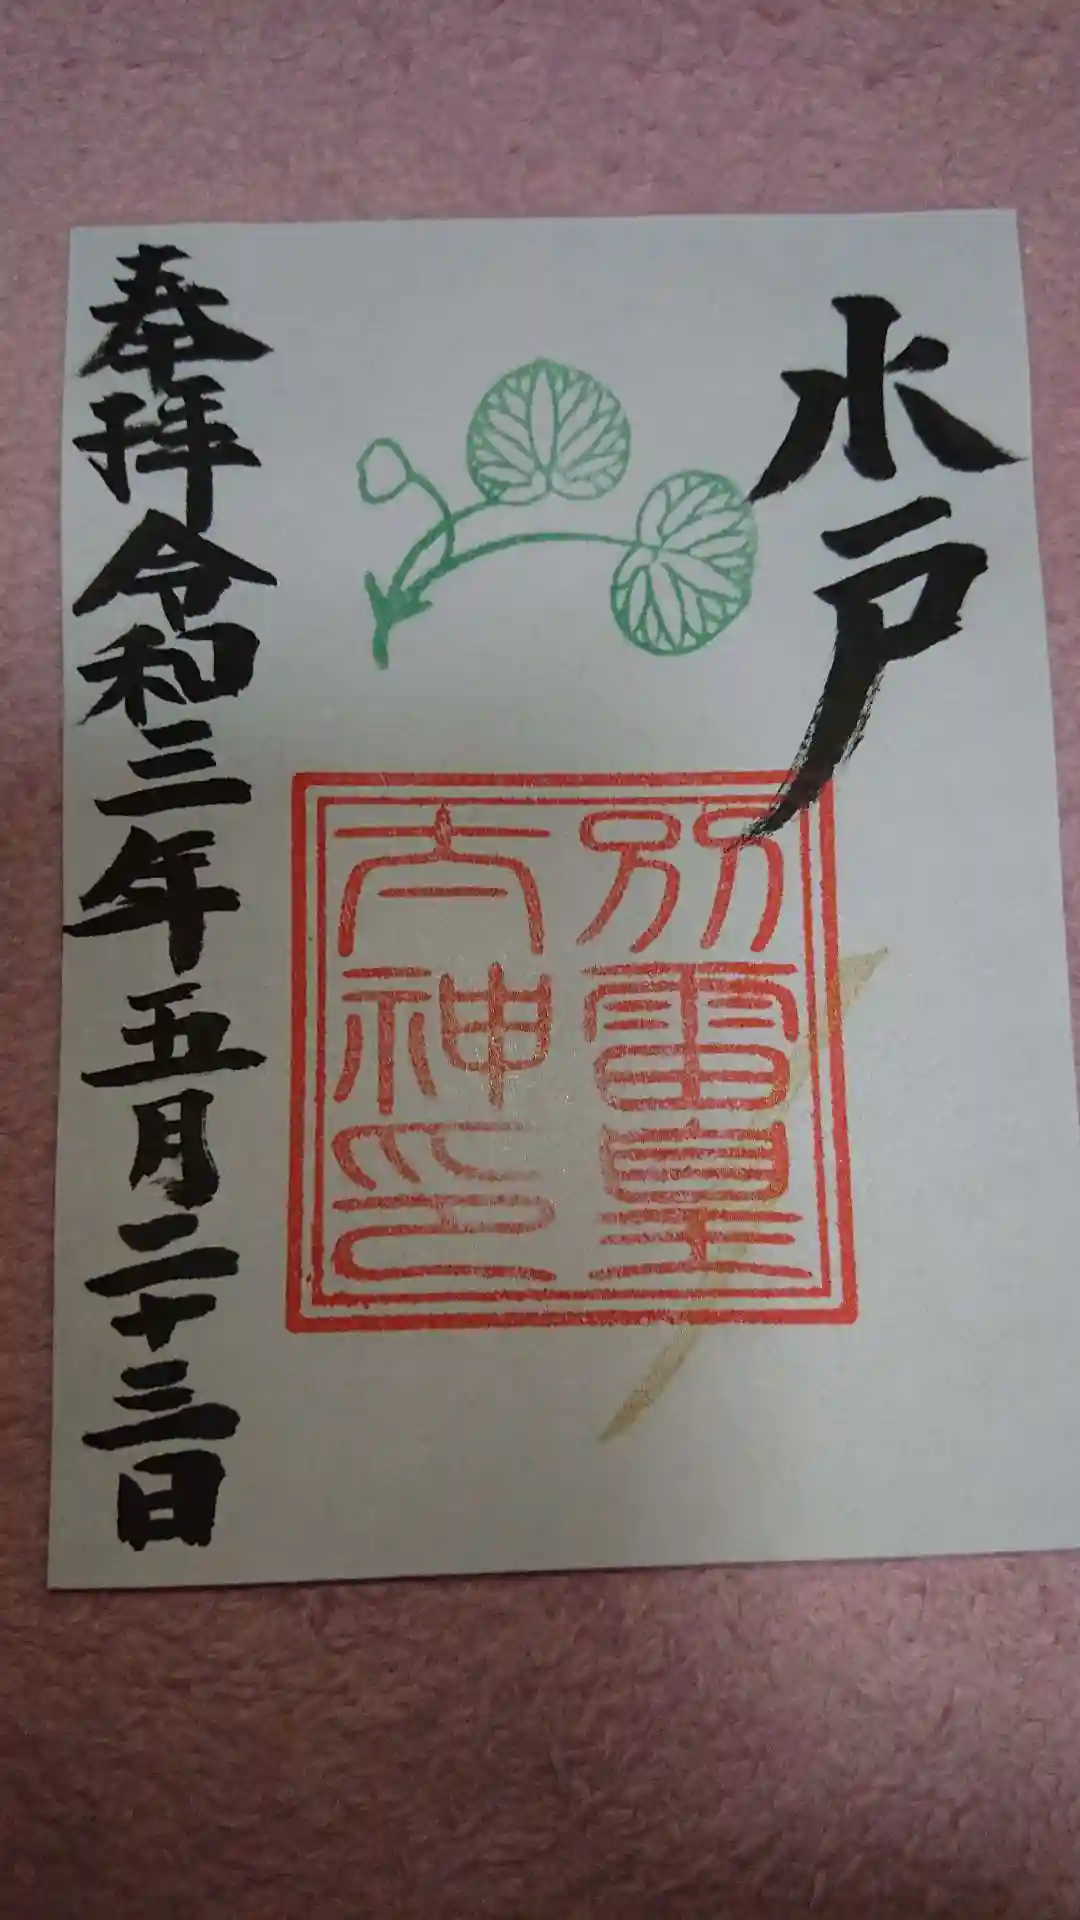 水戸
別雷皇
太神印
奉拝令和三年五月二十三日